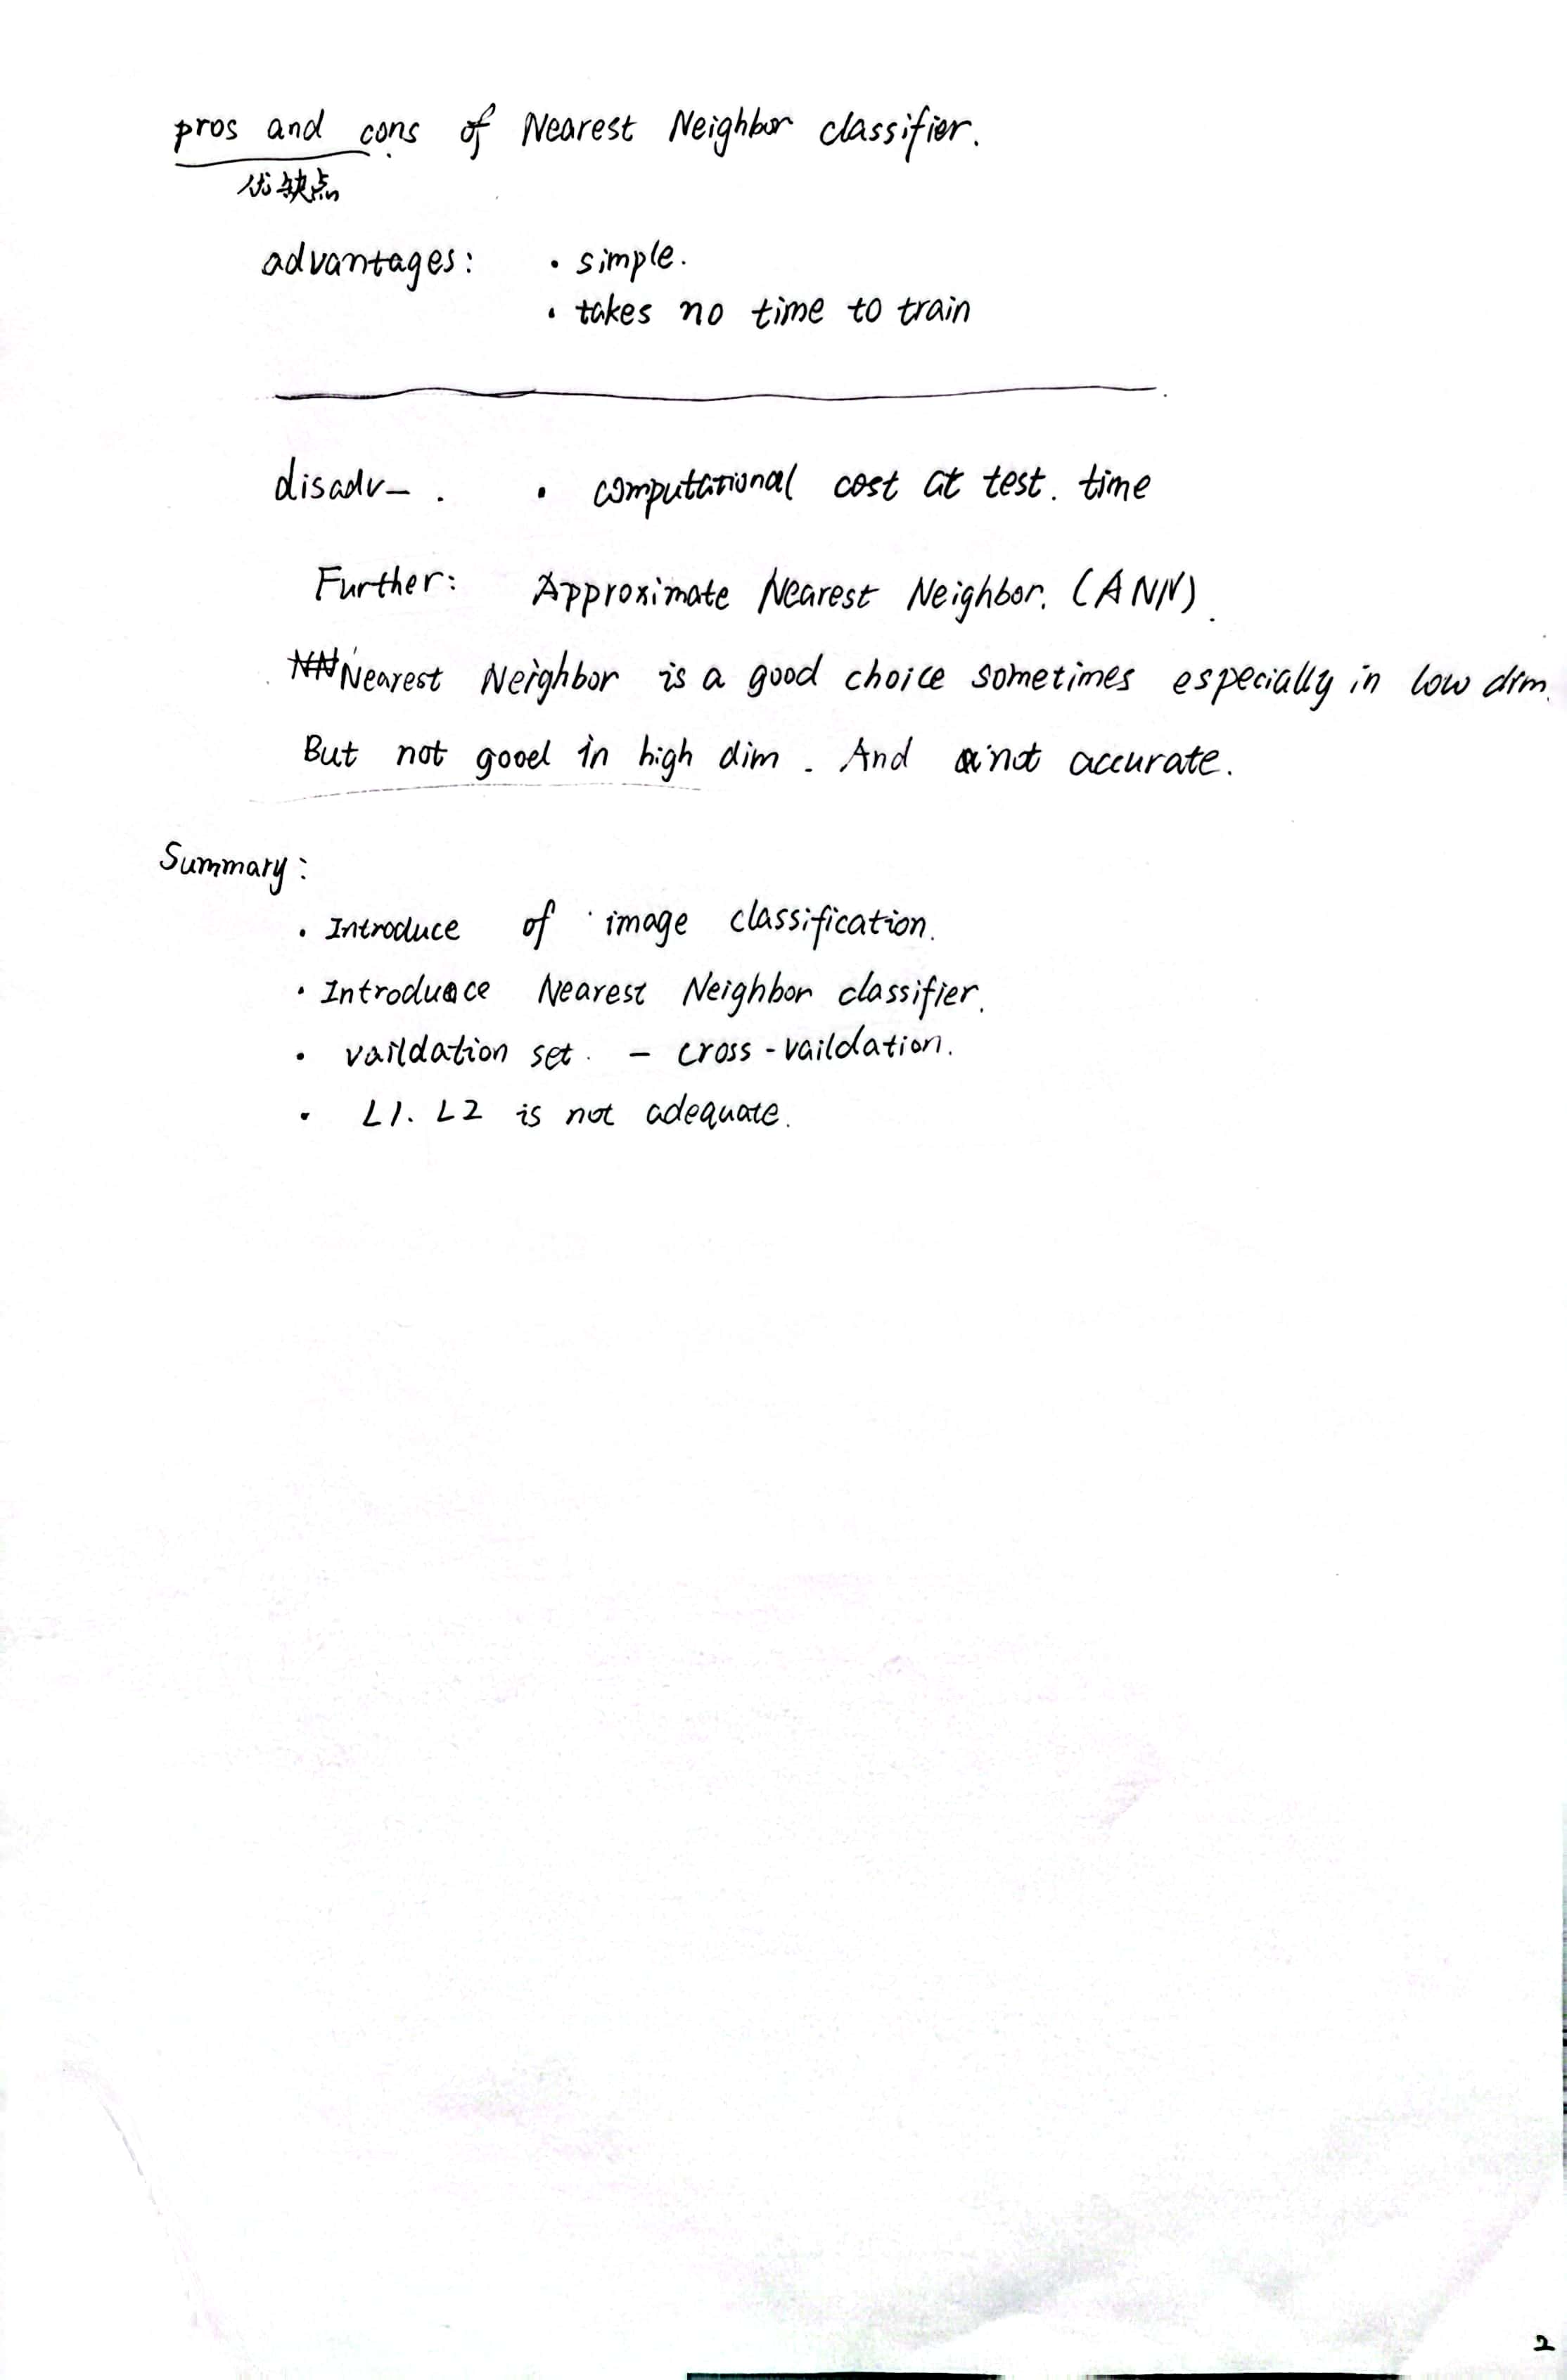 pros and cons of Nearest Neighbor classifier.
优缺点
advantages: · simple.
· takes no time to train
disadv— . · computational cost at test. time
Further: Approximate Nearest Neighbor. (ANN).
Nearest Neighbor is a good choice sometimes especially in low dim.
But not good in high dim. And not accurate.
Summary:
· Introduce of image classification.
· Introduce Nearest Neighbor classifier.
· vaildation set. — cross-vaildation.
· L1. L2 is not adequate.
2